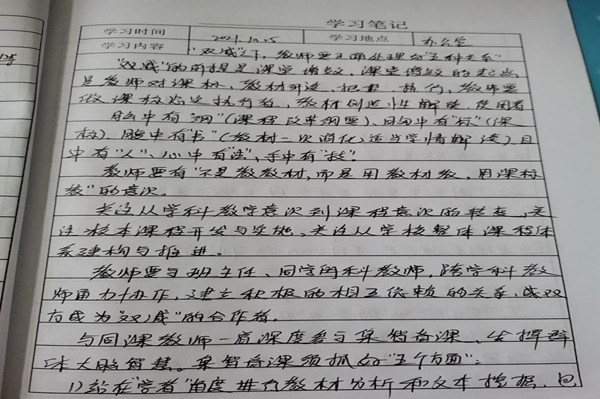 学习笔记
学习时间 2021.10.5 学习地点 办公室
学习内容 "双减"之下,教师要正确处理的"五种关系"
"双减"的前提是课堂增效,课堂增效的起点
是教师对课标、教材研读、把握、执行,教师要
做课标忠实执行者,教材创造性解读、使用者
脑中有"纲"(课程改革纲要),胸中有"标"(课
标),腹中有"书"(教材二次消化,适当学情解读)目
中有"人",心中有"法",手中有"技"。
教师要有"不是教教材,而是用教材教,用课标
教"的意识。
关注从学科教学意识到课程意识的转变,关
注校本课程开发与实施,关注从学校整体课程体
系建构与推进。
教师要与班主任、同学科教师,跨学科教
师通力协作,建立积极的相互依赖的关系,成双
方成为"双减"的合作者。
与同课教师一道深度参与集智备课,发挥群
体大脑智慧。集智备课须抓好"五个方面":
1)站在"学者"角度进行教材分析和文本挖掘,包